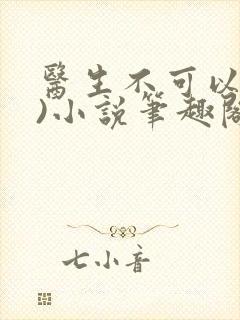 醫生不可以
)小說筆趣閣
七小音